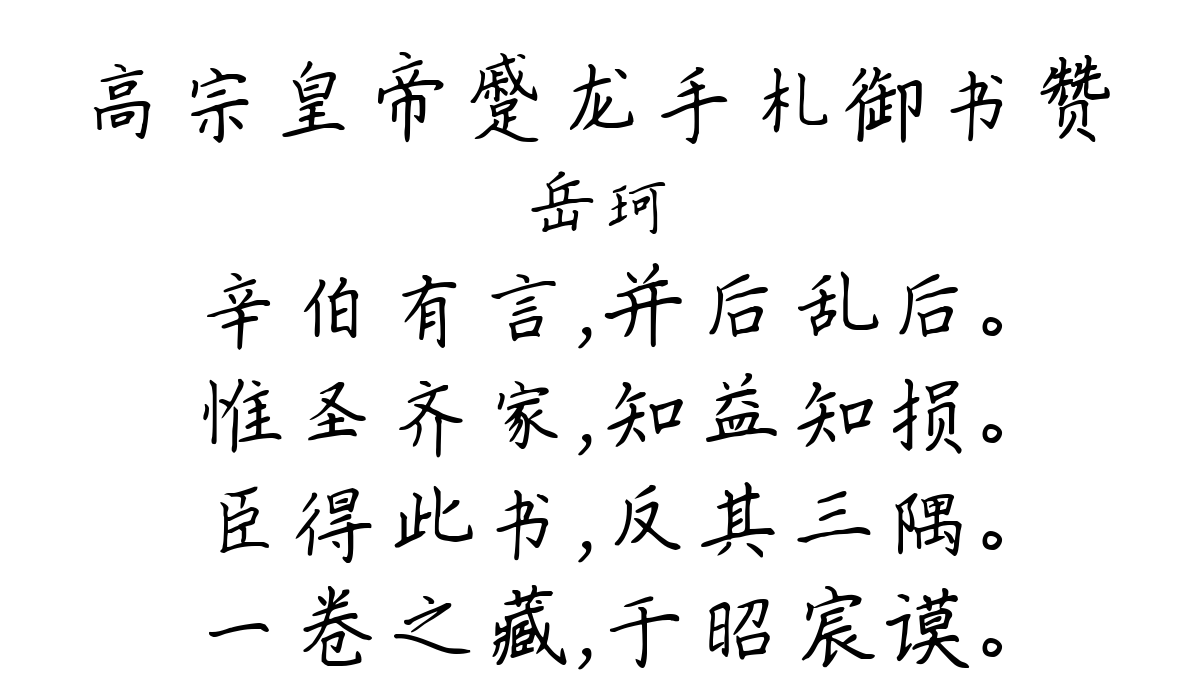 高宗皇帝蹙龙手札御书赞
岳珂
辛伯有言,并后乱后。
惟圣齐家,知益知损。
臣得此书,反其三隅。
一卷之藏,于昭宸谟。